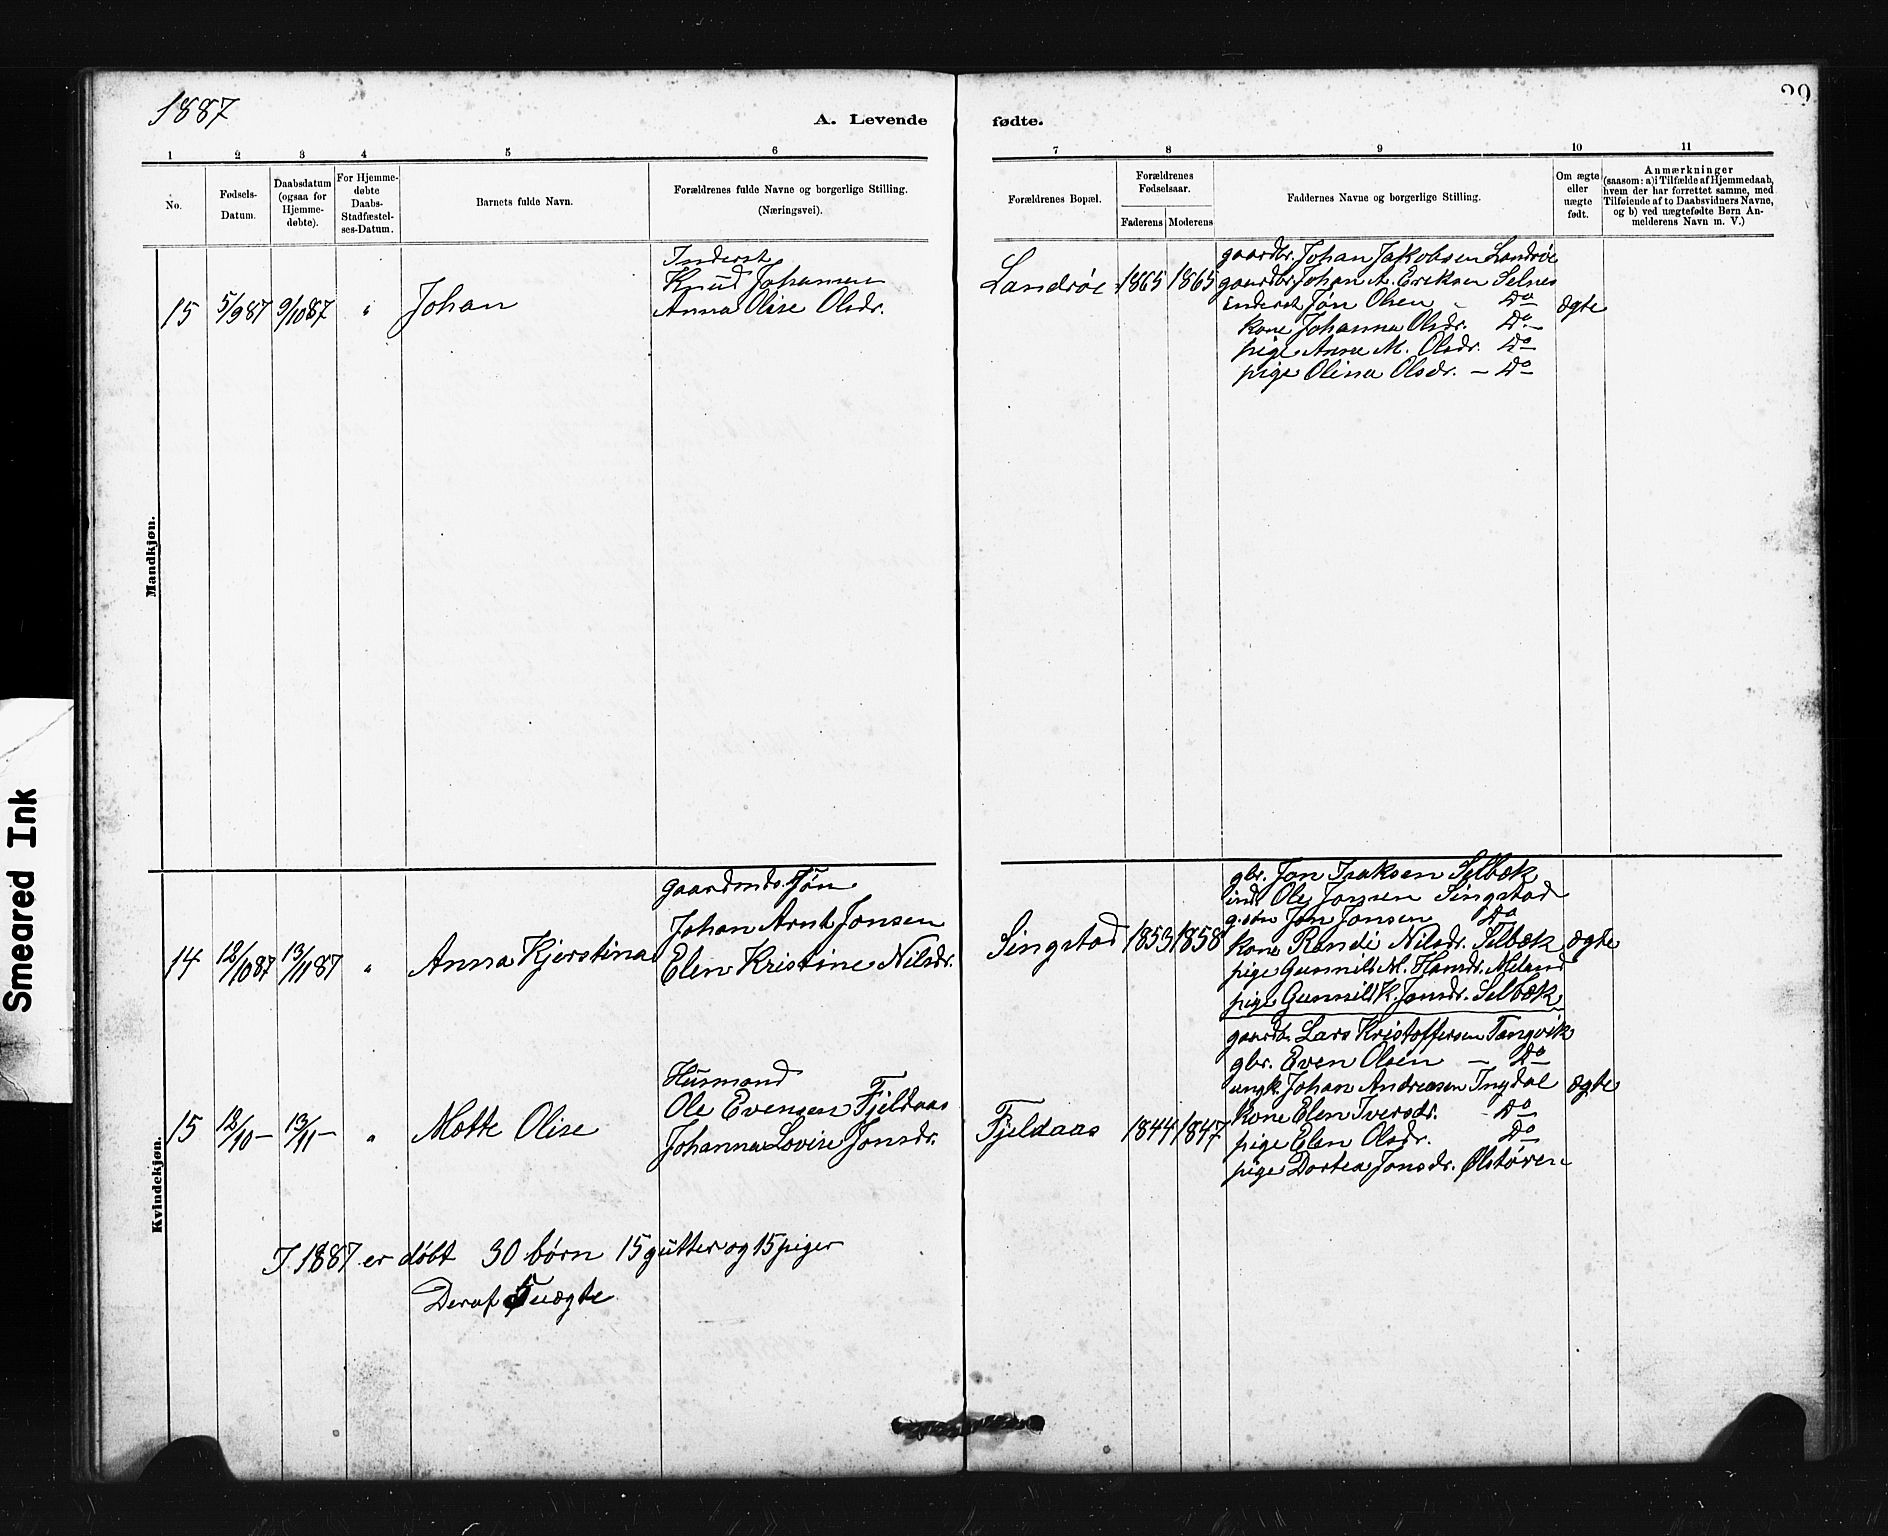 1887
A. Levende fødte.
29
1 2 3 4 5 6 7 8 9 10 11
No.
Fødsels-
Datum.
Daabsdatum
(ogsaa for
Hjemme-
døbte).
For Hjemme-
døbte
Daabs-
Stadfæstel-
ses-Datum.
Barnets fulde Navn.
Forældrenes fulde Navne og borgerlige Stilling.
(Næringsvei).
Forældrenes Bopæl.
Forældrenes
Fødselsaar.
Faderens Moderens
Faddernes Navne og borgerlige Stilling.
Om ægte
eller
uægte
født.
Anmærkninger
(saasom: a) i Tilfælde af Hjemmedaab,
hvem der har forrettet samme, med
Tilføiende af to Daabsvidners Navne,
og b) ved uægtefødte Børn An-
melderens Navn m. V.)
Mandkjøn.
15 5/9 87 9/10 87 " Johan
Inderst
Knud Johansen
Anna Olise Olsdr.
Landrøe 1865 1865
gaardbr. Johan Jakobsen Landrøe
gaardbr. Johan A. Eriksen Selnes
inderst Jøn Olsen - Do
kone Johanna Olsdr. Do
pige Anne M. Olsdr. Do
pige Olina Olsdr. - Do
ægte
Kvindekjøn.
14 12/10 87 13/11 87 " Anna Kjerstina
Johan Arnt Jonsen
Elen Kristine Nilsdr.
Singstad 1853 1858
gbr. Jon Isaksen Selbæk
ind. Ole Jonsen Singstad
g.søn Jon Jonsen Do
kone Randi Nilsdr. Selbæk
pige Gunnild M. Hansdr. Meland
pige Gunnild K. Jonsdr. Selbæk
ægte
15 12/10 - 13/11 - " Mette Olise
Husmand
Ole Evensen Fjeldaas
Johanna Lovise Jonsdr.
Fjeldaas 1844 1847
gaardbr. Lars Kristoffersen Tangvik
gbr. Even Olsen - Do
ungk. Johan Andreasen Ingdal
kone Elen Iversdr. - Do
pige Elen Olsdr. Do
pige Dortea Jonsdr.Ølstøren
ægte
I 1887 er døbt 30 børn 15 gutter og 15 piger
Deraf 5 uægte
Smeared Ink